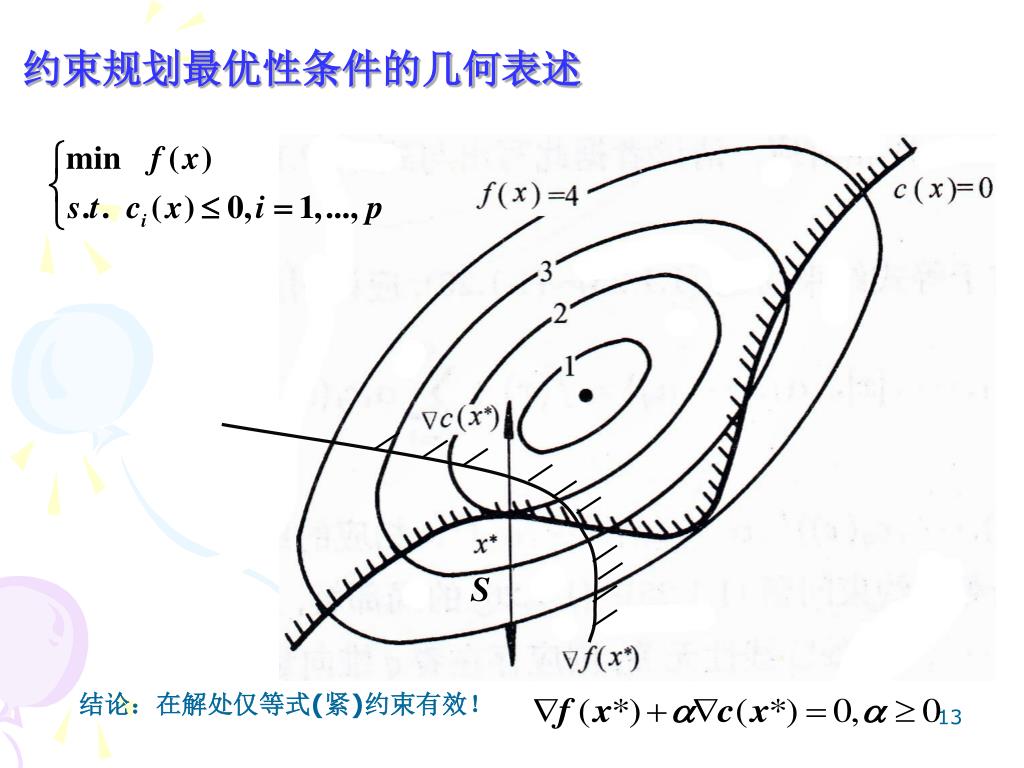 约束规划最优性条件的几何表述
min f(x)
s.t. c_i(x) ≤ 0, i = 1,..., p
f(x)=4
c(x)=0
3
2
1
∇c(x*)
x*
S
∇f(x*)
结论：在解处仅等式(紧)约束有效！
∇f(x*)+α∇c(x*)=0, α ≥ 0
13